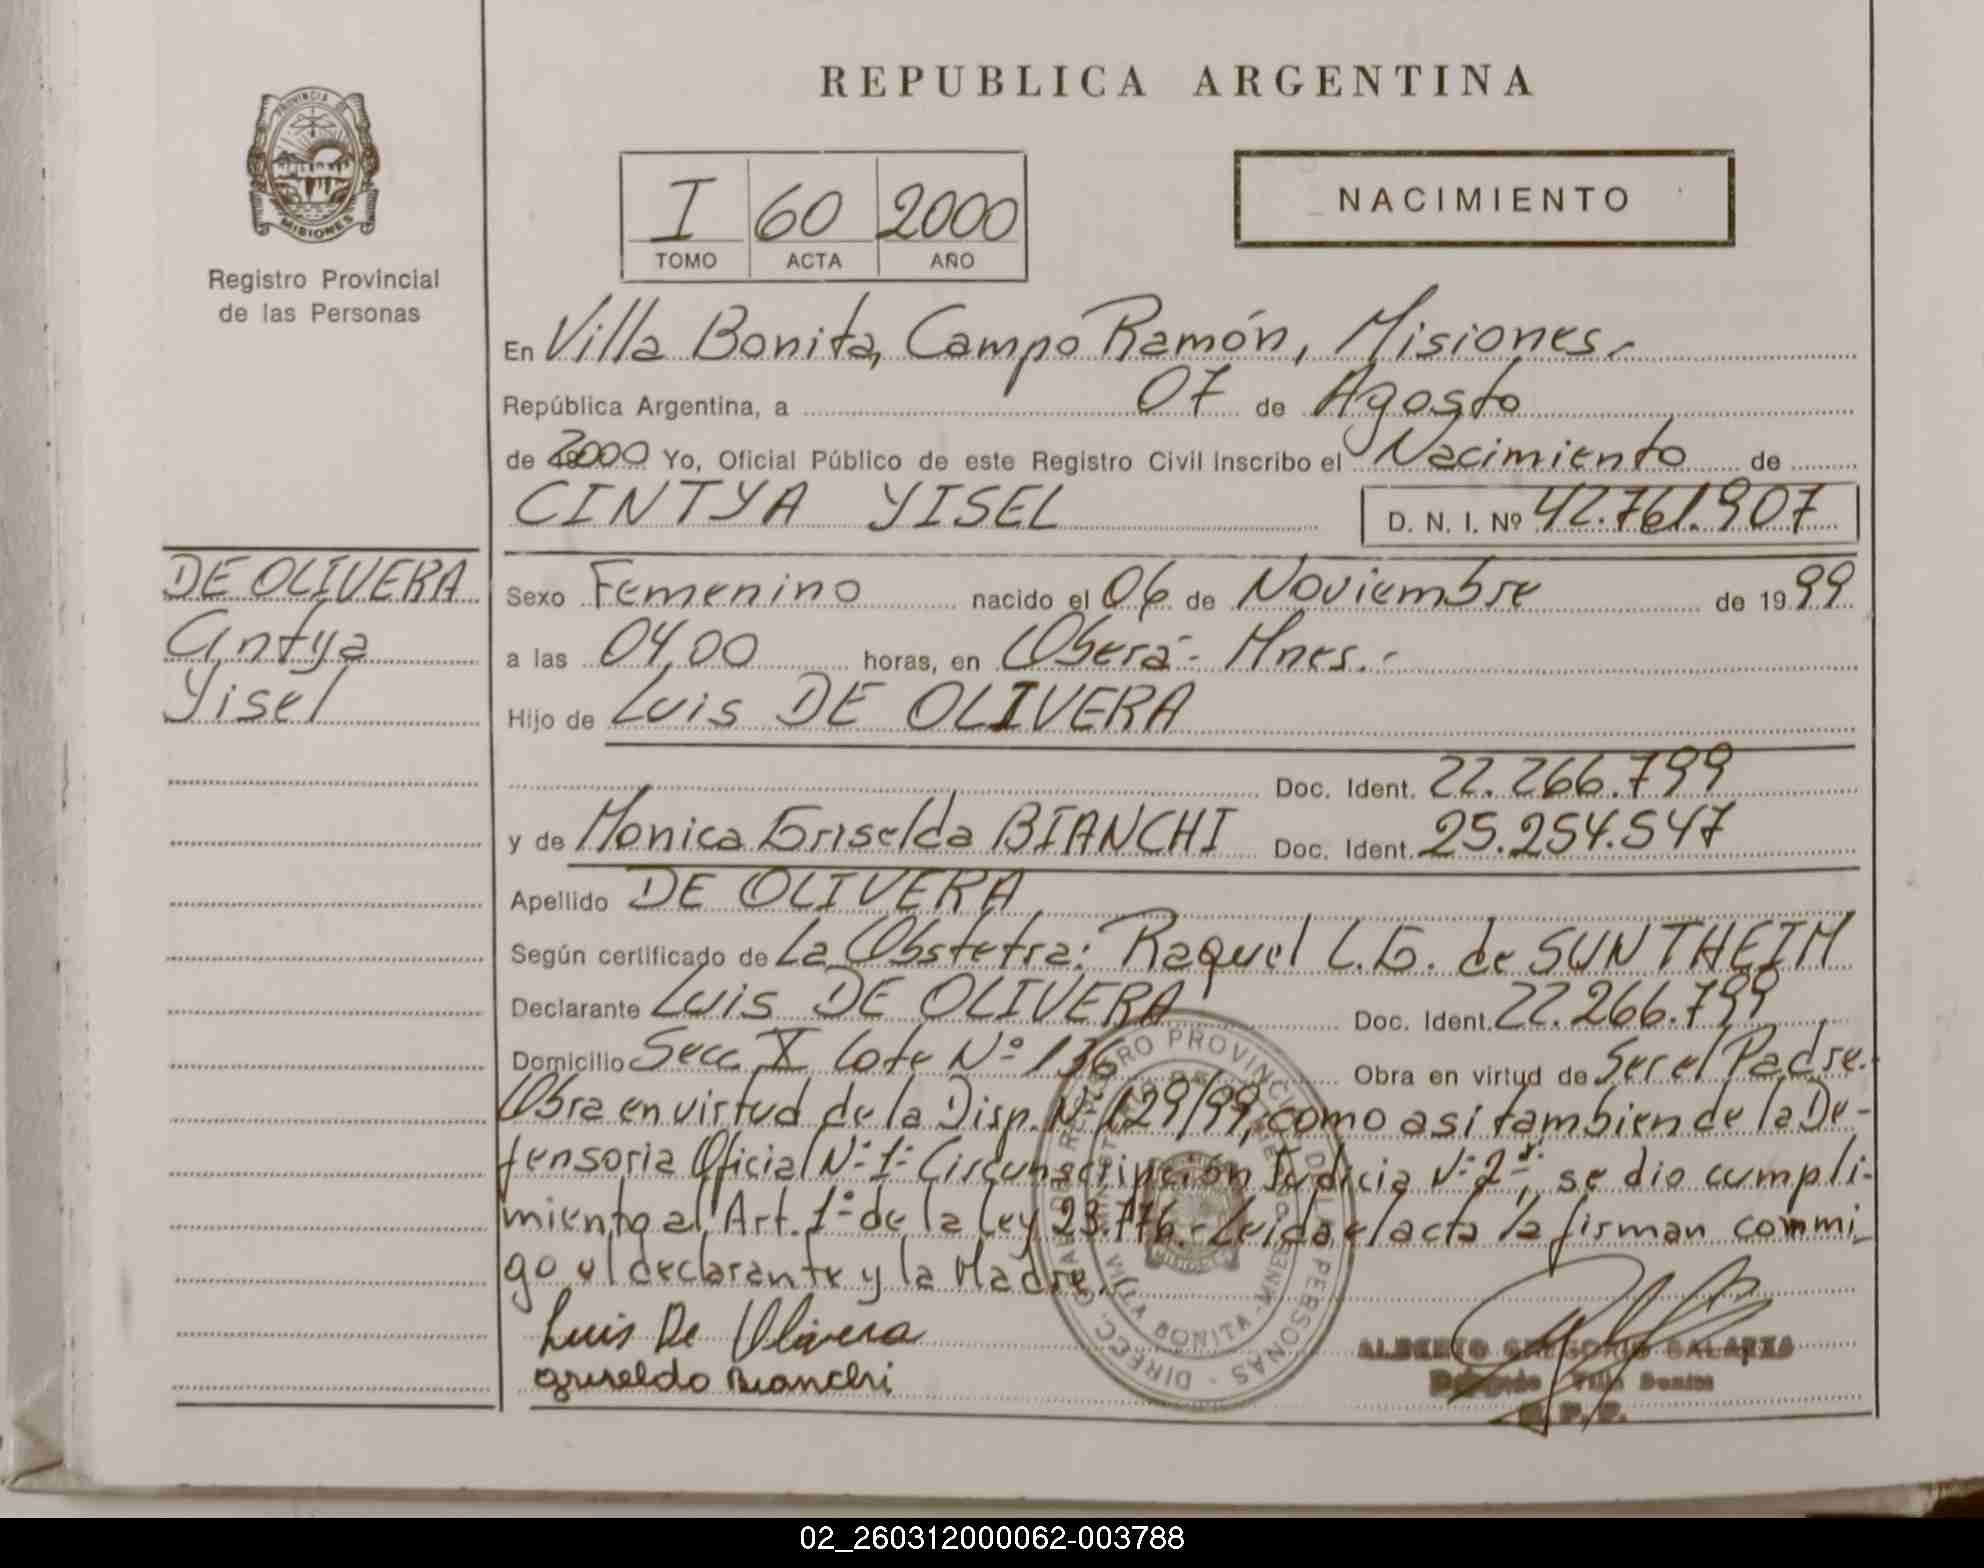 REPUBLICA ARGENTINA
PROVINCIA DE
MISIONES
Registro Provincial
de las Personas
I 60 2000
TOMO ACTA AÑO
NACIMIENTO
En Villa Bonita, Campo Ramón, Misiones.
República Argentina, a 07 de Agosto
de 2000 Yo, Oficial Público de este Registro Civil Inscribo el Nacimiento de
CINTYA YISEL D. N. I. Nº 42.761.907
DE OLIVERA
Cintya
Yisel
Sexo Femenino nacido el 06 de Noviembre de 1999
a las 04,00 horas, en Oberá- Mnes.-
Hijo de Luis DE OLIVERA
Doc. Ident. 22.266.799
y de Monica Griselda BIANCHI Doc. Ident. 25.254.547
Apellido DE OLIVERA
Según certificado de La Obstetra: Raquel L.G. de SUNTHEIM
Declarante Luis DE OLIVERA Doc. Ident. 22.266.799
Domicilio Secc. X Lote Nº 136 Obra en virtud de Ser el Padre.
Obra en virtud de la Disp. Nº 129/99, como asi tambien de la De-
fensoria Oficial Nº 1- Circunscripción Judicia Nº 2-, se dio cumpli-
miento al Art. 1º de la Ley 23.776.- Leida el acta la firman commi_
go el declarante y la Madre.
Luis De Olivera
Griselda Bianchi
ALBERTO GREGORIO GALARZA
Delegado Villa Bonita
R. P. P.
VILLA BONITA - MNES
02_260312000062-003788